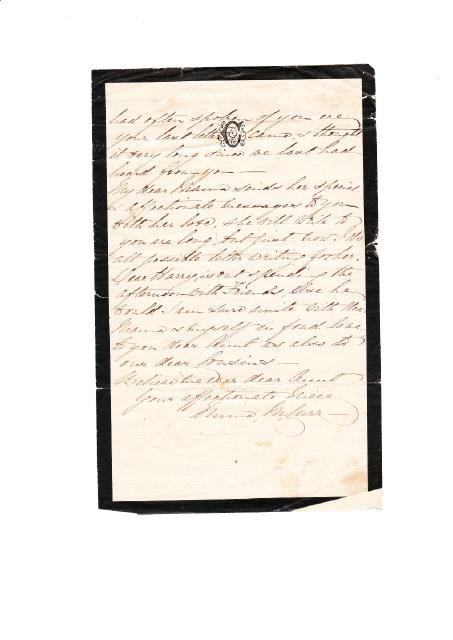 had often spoken of you ere
your last letter came, & thought
it very long since we last had
heard from you —
My dear Mama sends her special
& affectionate messages to you
with her love, she will write to
you ere long, but just now I do
all possible letter writing for her.
Dear Harry is out spending the
afternoon with Friends, else he
would I am sure unite with dear
Mama & myself in fond love
to you dear Aunt as also to
our dear Cousins —
Believe me ever dear Aunt
Your affectionate Niece